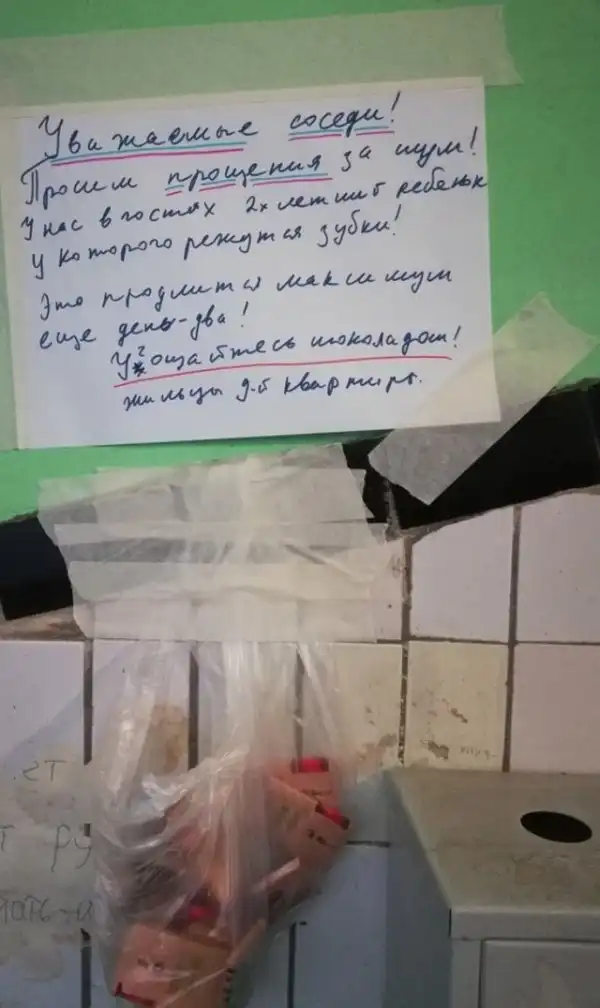 Уважаемые соседи!
Просим прощения за шум!
У нас в гостях 2х летний ребенок
у которого режутся зубки!
Это продлится максимум
еще день-два!
Угощайтесь шоколадом!
жильцы 9-й квартиры.